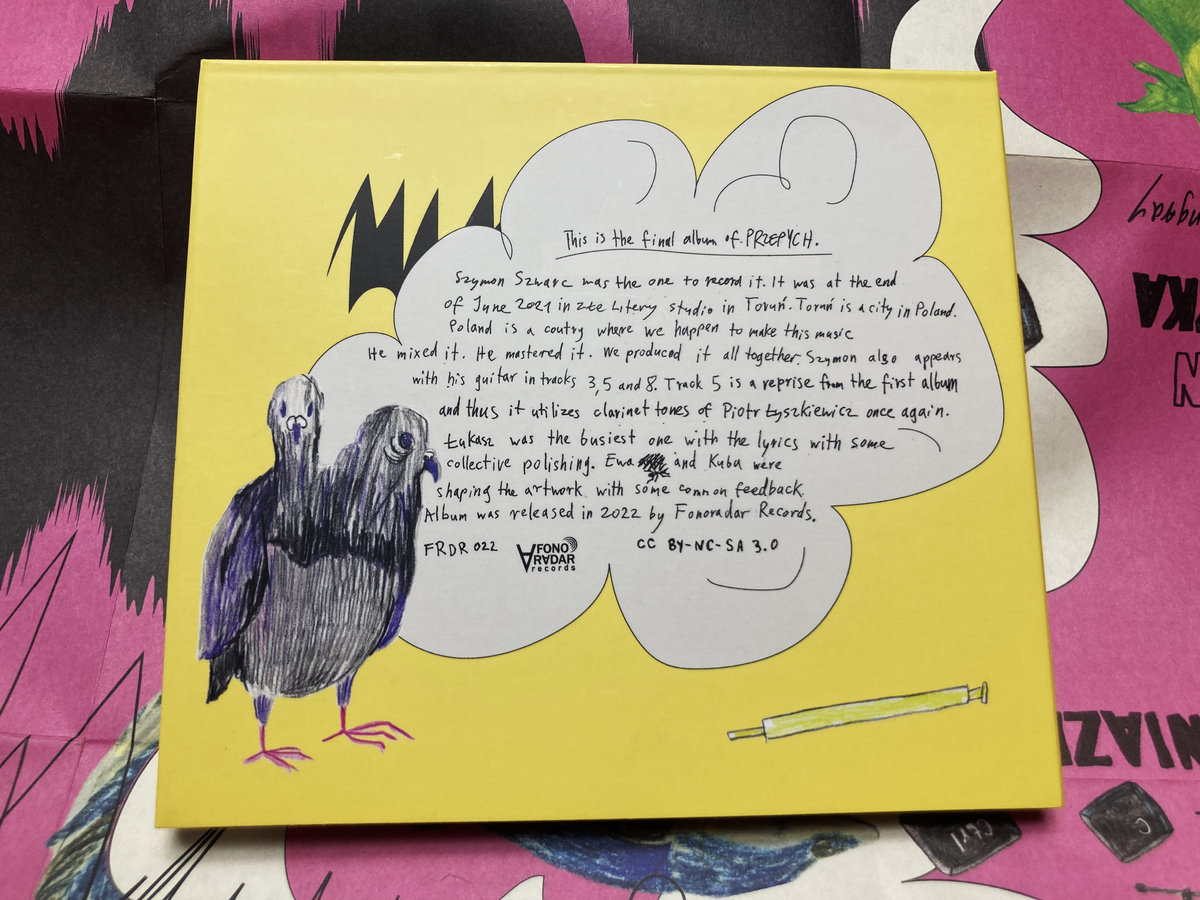 This is the final album of PRZEPYCH.
Szymon Szwarc was the one to record it. It was at the end
of June 2021 in Złe Litery studio in Toruń. Toruń is a city in Poland.
Poland is a coutry where we happen to make this music
He mixed it. He mastered it. We produced it all together. Szymon also appears
with his guitar in tracks 3, 5 and 8. Track 5 is a reprise from the first album
and thus it utilizes clarinet tones of Piotr Łyszkiewicz once again.
Łukasz was the busiest one with the lyrics with some
collective polishing. Ewa and Kuba were
shaping the artwork with some common feedback.
Album was released in 2022 by Fonoradar Records.
FRDR 022
FONO
RADAR
records
CC BY-NC-SA 3.0
KA
N
NIAZ
Ctrl
C